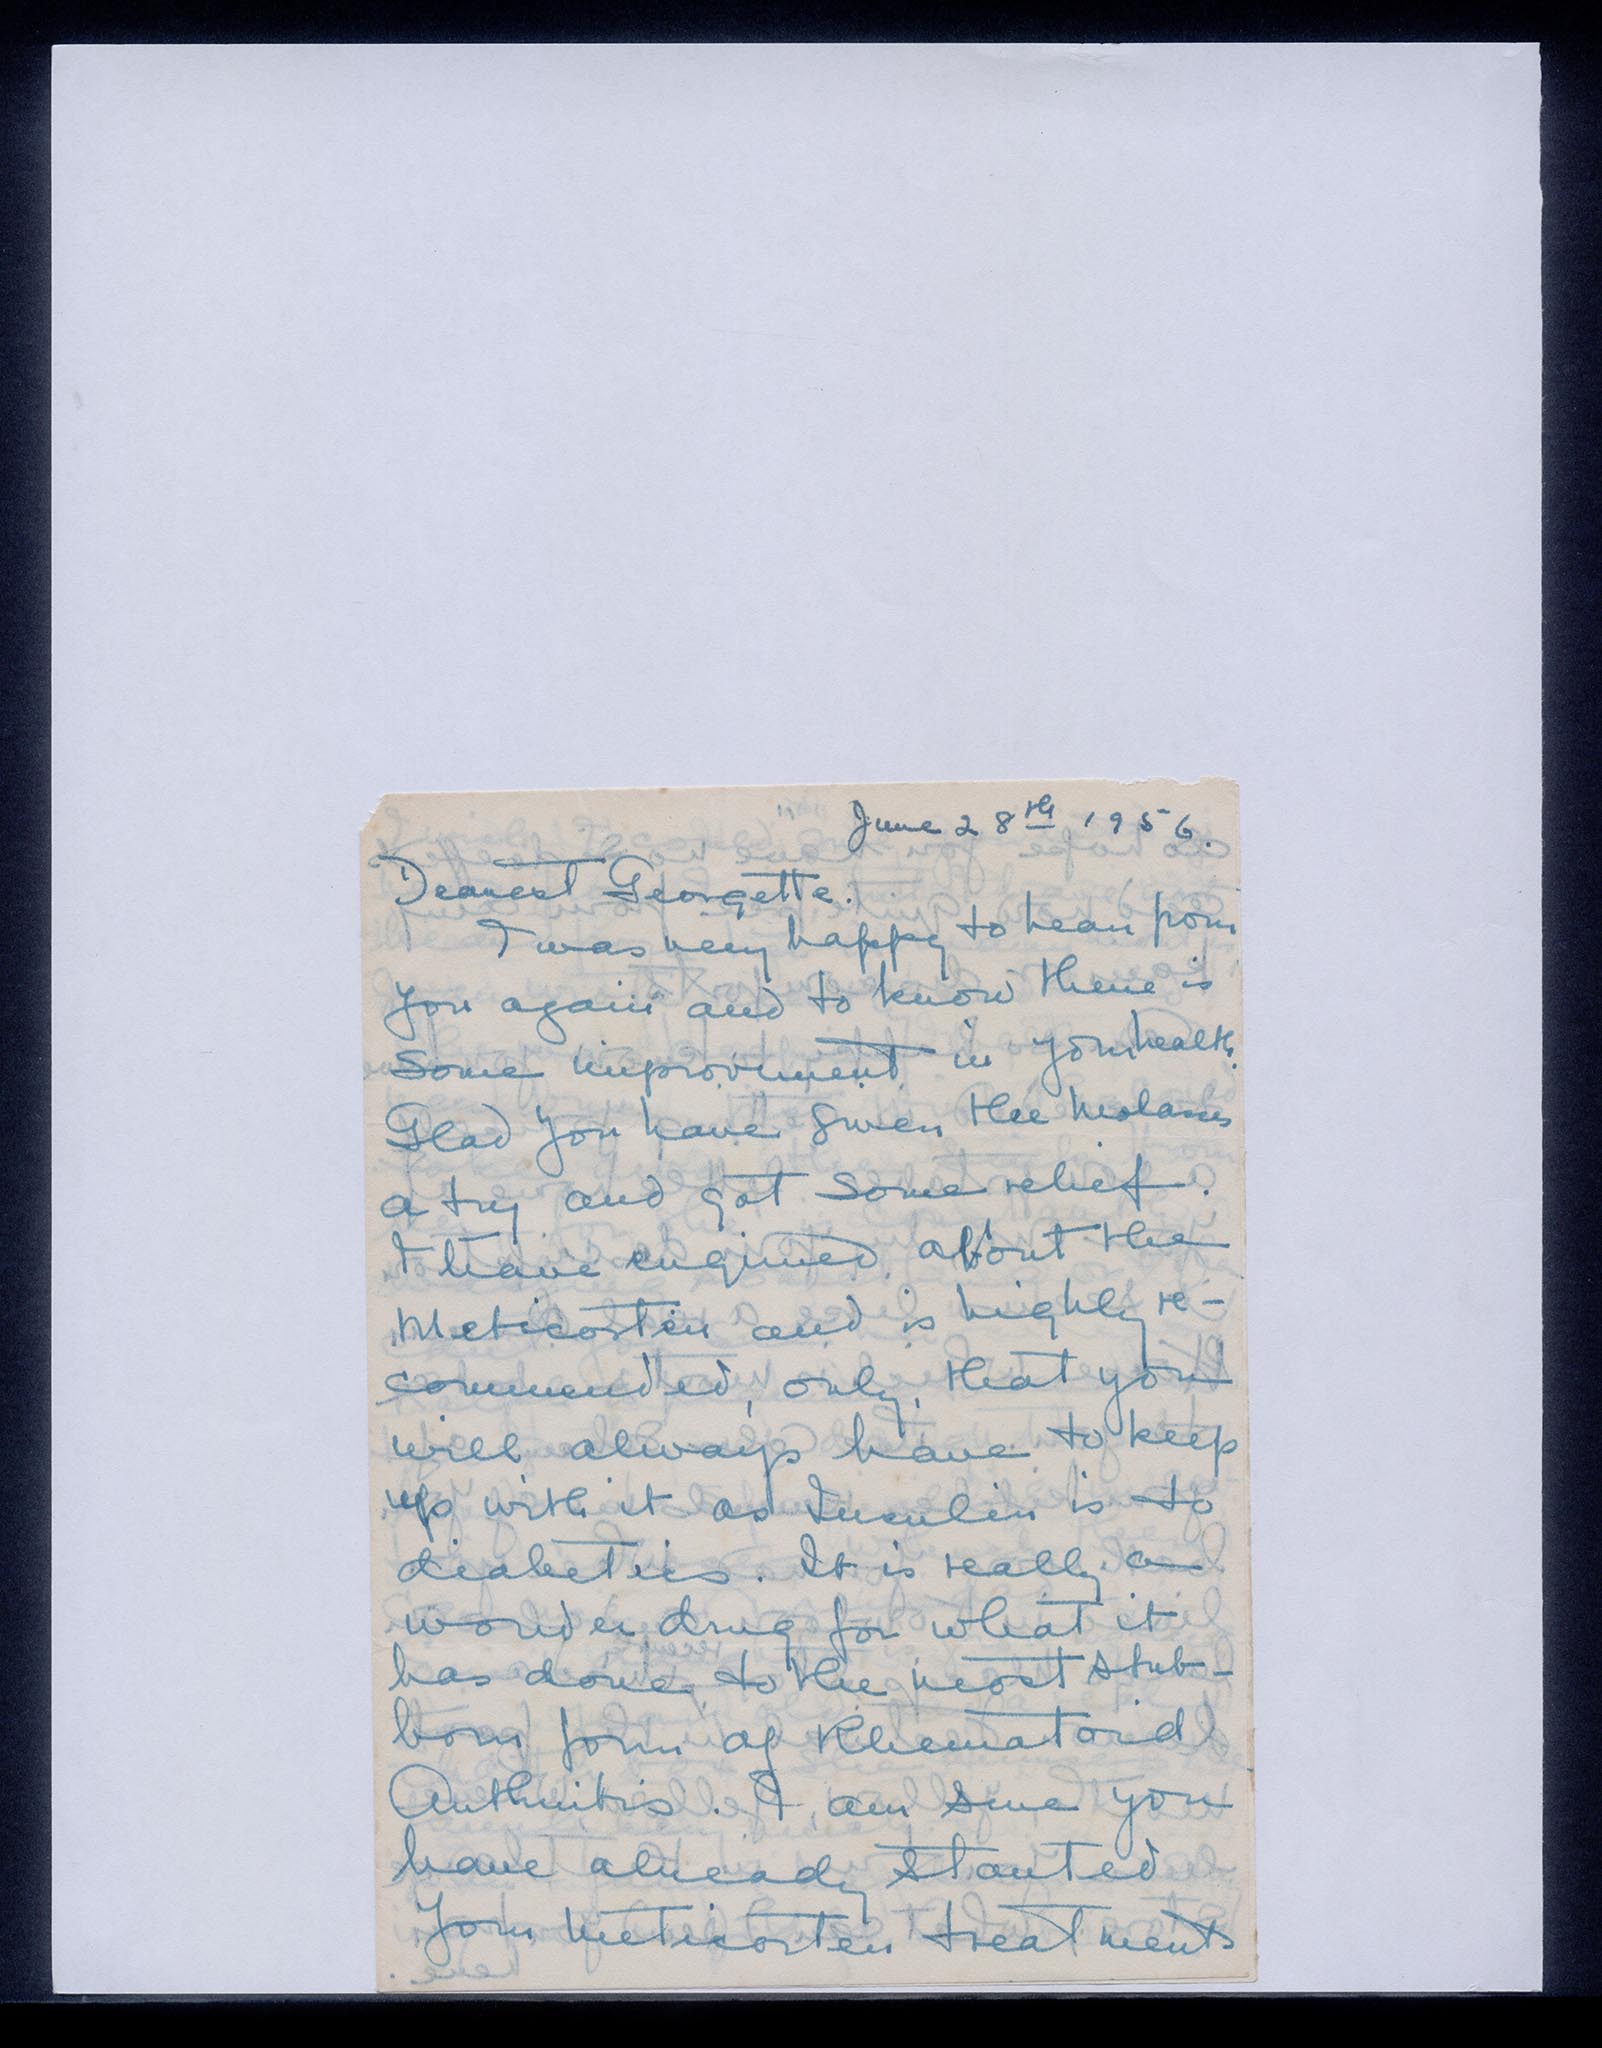 June 28th 1956.
Dearest Georgette.
I was very happy to hear from
you again and to know there is
some improvement in your health.
Glad you have given the molasses
a try and got some relief.
I have enquired about the
Meticorten and is highly re-
commended, only, that you
will always have to keep
up with it as Insulin is to
diabetics. It is really a
wonder drug for what it
has done to the most stub-
born form of Rheumatoid
Arthritis. I am sure you
have already started
your Meticorten treatments